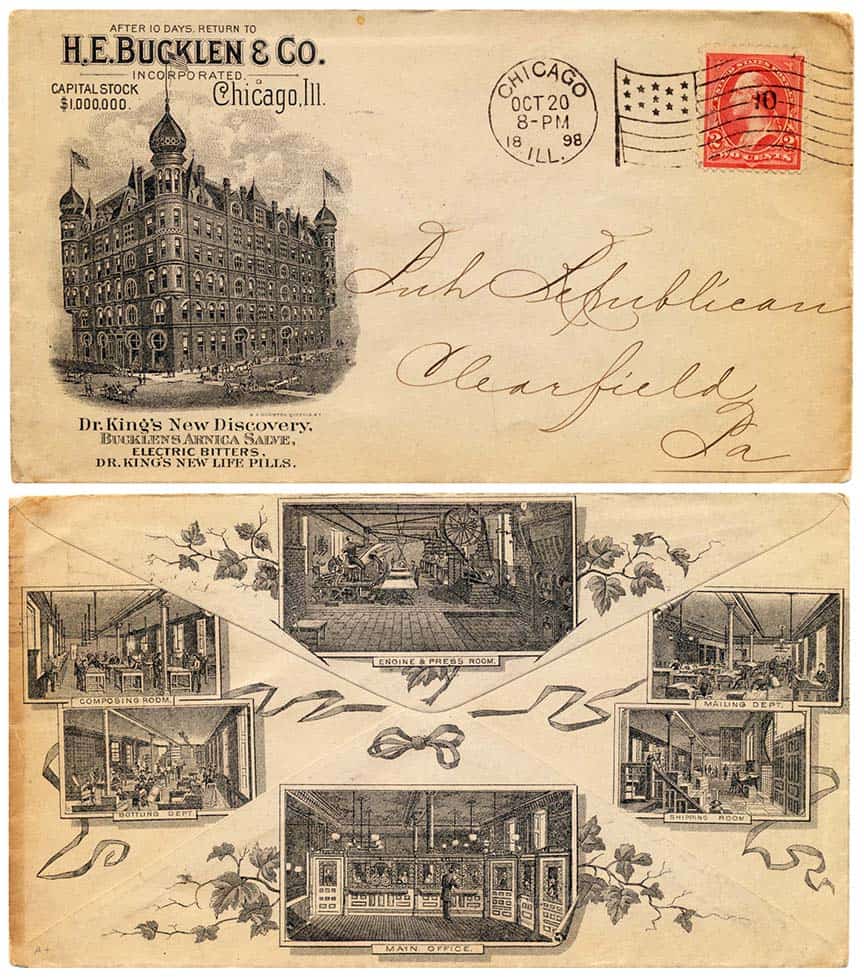 AFTER 10 DAYS, RETURN TO
H.E. BUCKLEN & CO.
INCORPORATED.
CAPITAL STOCK
$1,000,000.
Chicago, Ill.
CHICAGO
OCT 20
8-PM
18 98
ILL.
2 2
TWO CENTS
Pub Republican
Clearfield
Pa
Dr. King's New Discovery,
BUCKLEN'S ARNICA SALVE,
ELECTRIC BITTERS,
DR. KING'S NEW LIFE PILLS.
ENGINE & PRESS ROOM.
COMPOSING ROOM.
MAILING DEPT.
BOTTLING DEPT
SHIPPING ROOM
MAIN OFFICE.